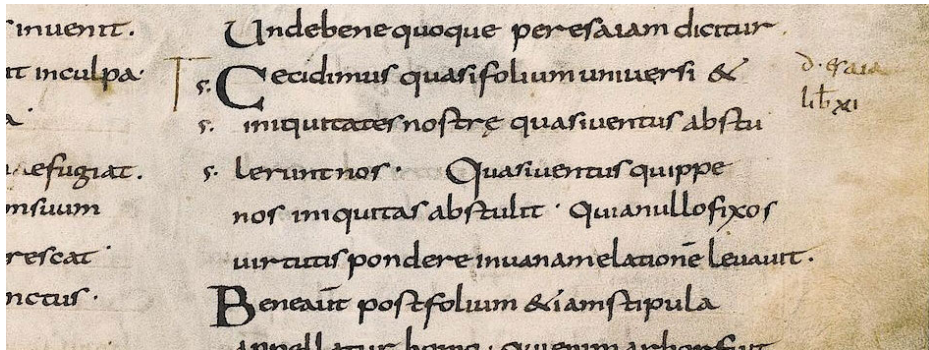 inuenit.
it inculpa·
efugiat.
insuum
rescat
nctus ·
Undebene quoque peresaiam dicitur ·
s. Cecidimus quasifolium uniuersi &
s. iniquitates nostrę quasiuentus abstu
s. leruntnos · Quasiuentus quippe
nos iniquitas abstulit · Quianullofixos
uirtutis pondere inuanamelationē leuauit.
Beneaūt postfolium &iamstipula
appellatur homo · Quienim arborfuit
d· esaia
lib xi